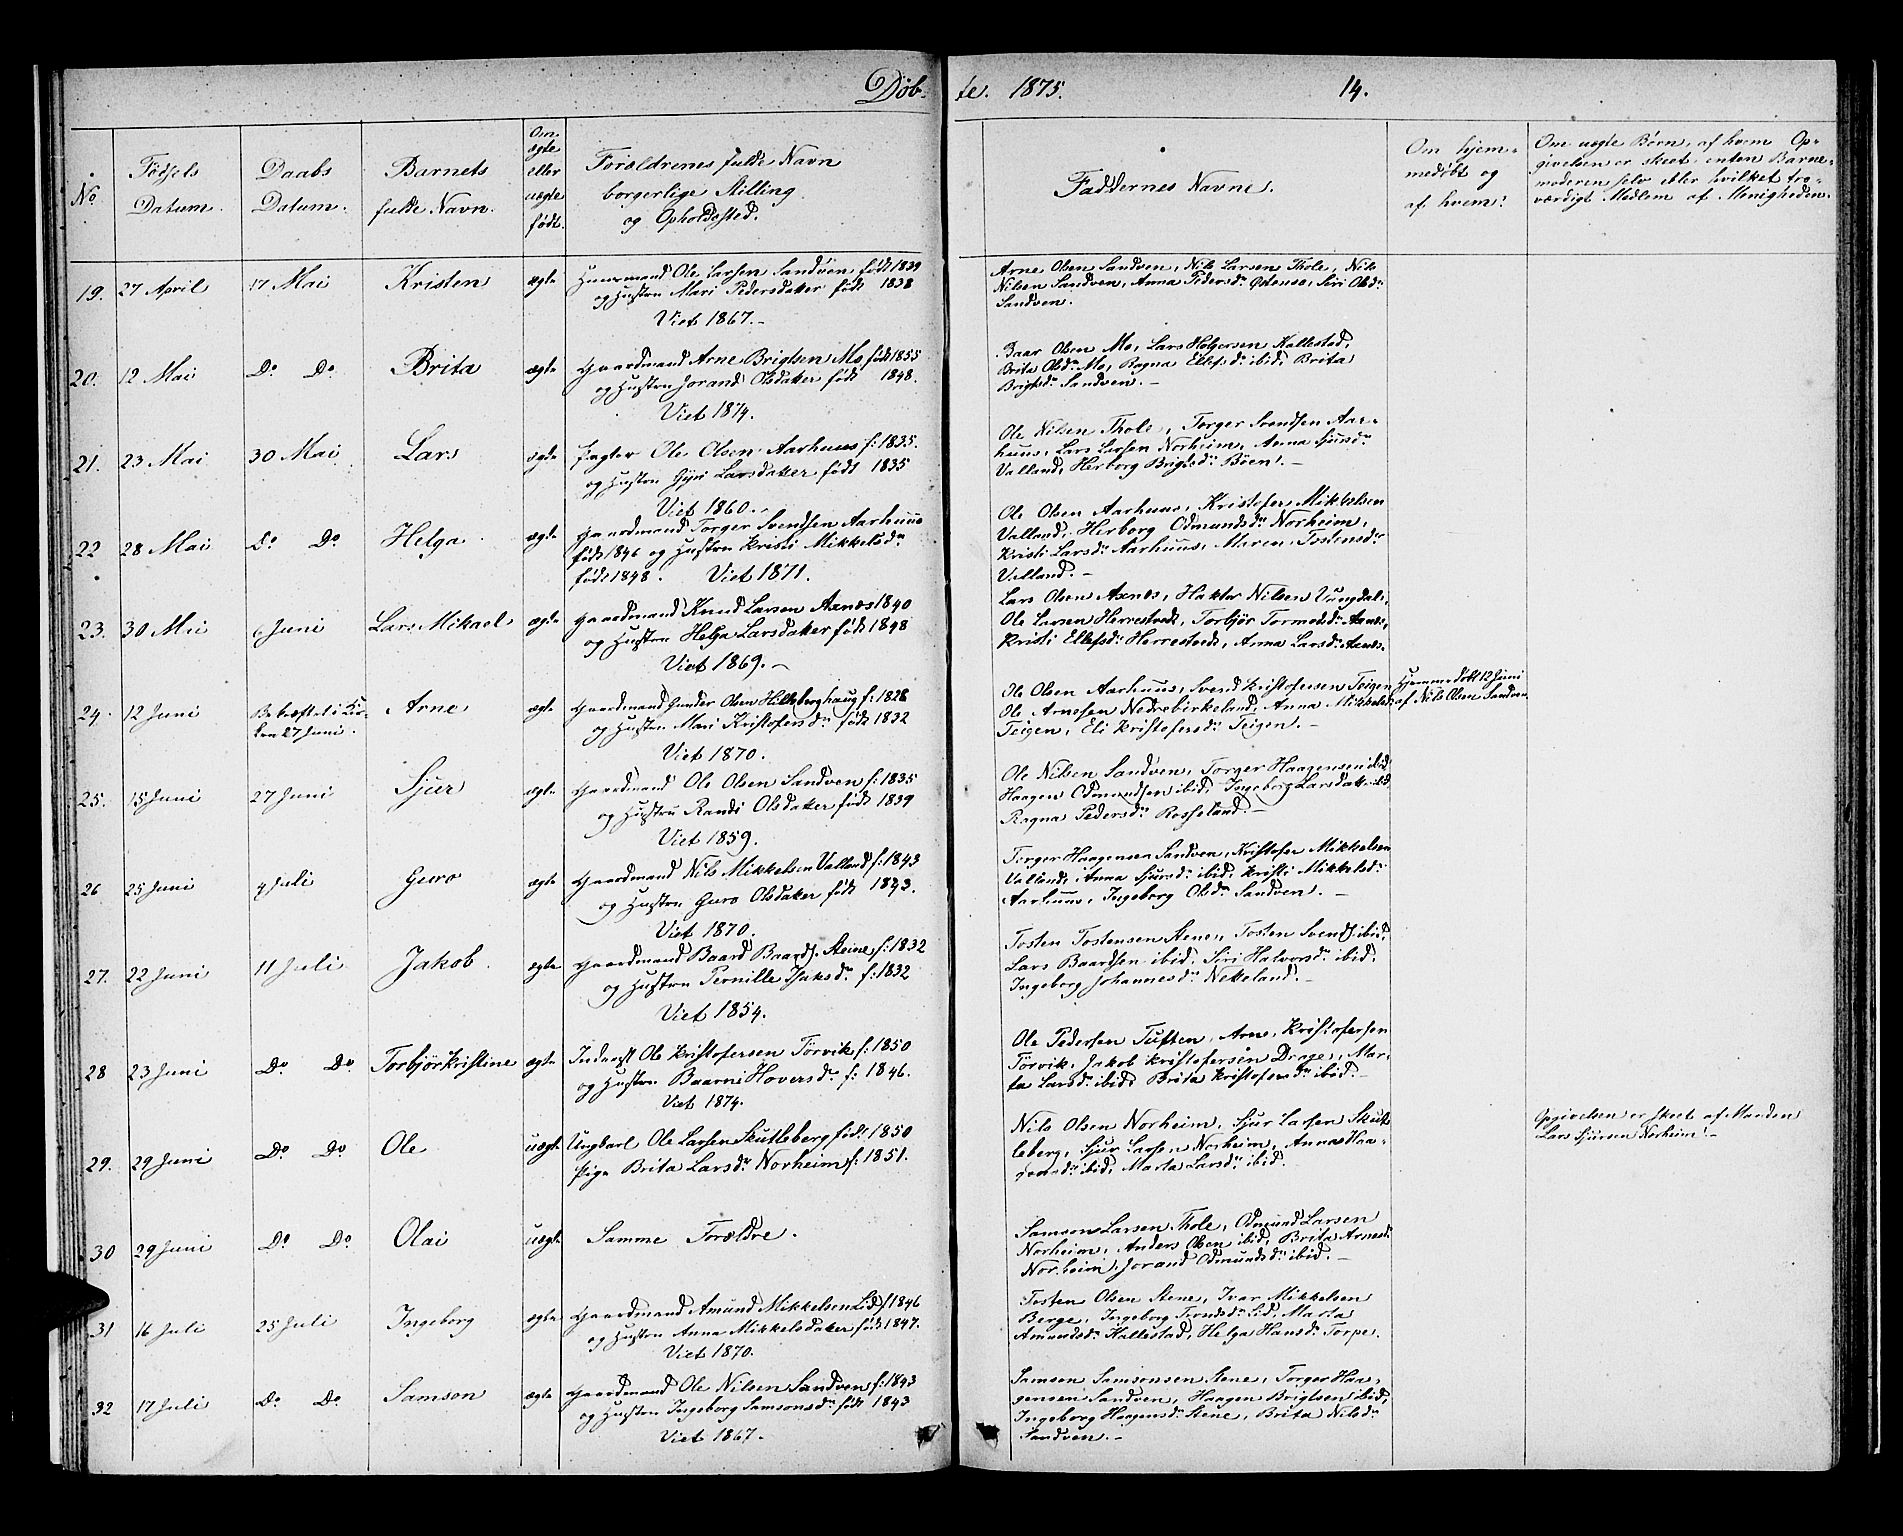 Döb- te. 1875. 14.
No
Födsels Datum.
Daabs Datum.
Barnets fulde Navn.
Om ægte eller uægte født.
Forældrenes fulde Navn borgerlige Stilling og Opholdssted.
Faddernes Navne.
Om hjemmedøbt og af hvem?
Om uægte Børn, af hvem Op-
givelsen er skeet, enten Barne-
moderen selv eller hvilket tro-
værdigt Medlem af Menigheden.
19. 27 April 17 Mai Kristen ægte Huusmand Ole Larsen Sandven født 1839
og Hustru Mari Pedersdatter født 1838
Viet 1867.-
Arne Olsen Sandven, Nils Larsen Thole, Nils
Nilsen Sandven, Anna Pedersdr. Østensø, Siri Olsdr.
Sandven.
20. 12 Mai Do. Do. Brita ægte Gaardmand Arne Brigtsen Mo født 1855
og Hustru Jorand Olsdatter født 1848.
Viet 1874.
Baar Olsen Mo, Lars Holgersen Kallestad,
Brita Olsdr. Mo, Ragna Ellefsdr. ibid, Brita
Brigtsdr. Sandven.-
21. 23 Mai 30 Mai Lars ægte Pagter Ole Olsen Aarhuus f: 1835.
og Hustru Gyri Larsdatter født 1835
Viet 1860.-
Ole Nilsen Thole, Torger Svendsen Aar-
huus, Lars Larsen Norheim, Anna Sjursdr.
Valland, Herborg Brigtsdr. Böen.-
22 28 Mai Do. Do. Helga ægte Gaardmand Torger Svendsen Aarhuus
født 1846 og Hustru Kristi Mikkelsdr.
født 1848. Viet 1871.
Ole Olsen Aarhuus, Kristofer Mikkelsen
Valland, Herborg Odmundsdr. Norheim,
Kristi Larsdr. Aarhuus, Maren Tostensdr.
Valland.-
23. 30 Mai 6 Juni Lars Mikael ægte Gaardmand Knud Larsen Axnes 1840
og Hustru Helga Larsdatter født 1848
Viet 1869.-
Lars Olsen Axnes, Haktor Nilsen Vungdal,
Ole Larsen Herrestveit, Torbjør Tormodsdr. Axnes,
Kristi Ellefsdr. Herrestveit, Anna Larsdr. Axnes.
24. 12 Juni Bekræftet i Kir-
ken 27 Juni. Arne ægte Gaardmand Gunder Olsen Hilleberghaug f: 1828
og Hustru Mari Kristofersdr. født 1832
Viet 1870.
Ole Olsen Aarhuus, Svend Kristofersen Teigen
Ole Arnesen Nedrebirkeland, Anna Mikkelsdr.
Teigen, Eli Kristofersdr. Teigen.-
Hjemmedöbt 12 Juni
af Nils Olsen Sandven
25. 15 Juni 27 Juni Sjur ægte Gaardmand Ole Olsen Sandven f: 1835
og Hustru Randi Olsdatter født 1839
Viet 1859.
Ole Nilsen Sandven, Torger Haagensen ibid
Haagen Odmundsen ibid, Ingeborg Larsdatter ibid,
Ragna Pedersdr. Rosseland.-
26 25 Juni 4 Juli Guro ægte Gaardmand Nils Mikkelsen Valland f: 1843
og Hustru Guro Olsdatter født 1843.
Viet 1870.
Torger Haagensen Sandven, Kristofer Mikkelsen
Valland, Anna Sjursdr. ibid, Kristi Mikkelsdr.
Aarhuus, Ingeborg Olsdr. Sandven.-
27. 22 Juni 11 Juli Jakob ægte Gaardmand Baard Baards. Steine f: 1832
og Hustru Pernille Isaksdr. f: 1832
Viet 1854.
Tosten Tostensen Stene, Tosten Svends. ibid,
Lars Baardsen ibid, Siri Halvorsdr. ibid,
Ingeborg Johannesdr. Nekkeland.-
28 23 Juni Do. Do. Torbjörkristine ægte Inderst Ole Kristofersen Törvik f: 1850
og Hustru Baarni Hoversdr. f: 1846.
Viet 1874.
Ole Pedersen Tuften, Arne Kristofersen
Törvik, Jakob Kristofersen Drage, Mar-
ta Larsdr. ibid, Brita Kristofersdr. ibid.-
29. 29 Juni Do. Do. Ole uægte Ungkarl Ole Larsen Skutleberg født 1850
Pige Brita Larsdr. Norheim f: 1851.
Nils Olsen Norheim, Sjur Larsen Skutle-
leberg, Sjur Larsen Norheim, Anna Haa-
gensdr. ibid, Marta Larsdr. ibid.
Opgivelsen er skeet af Manden
Lars Sjursen Norheim.-
30 29 Juni Do. Do. Olai uægte Samme Forældre.
Samson Larsen Thole, Odmund Larsen
Norheim, Anders Olsen ibid, Brita Arnesdr.
Norheim, Jorand Odmundsdr. ibid.-
31 16 Juli 25 Juli Ingeborg ægte Gaardmand Amund Mikkelsen Lid f 1846
og Hustru Anna Mikkelsdatter født 1847.
Viet 1870.
Tosten Olsen Stene, Ivar Mikkelsen
Berge, Ingeborg Lid, Marta
Amundsdr. Kallestad, Helga Hansdr. Torpe.
32 17 Juli Do. Do. Samson ægte Gaardmand Ole Nilsen Sandven f: 1843
og Hustru Ingeborg Samsonsdr. født 1843
Viet 1867.
Samson Samsonsen Stene, Torger Haa-
gensen Sandven, Haagen Brigtsen ibid,
Ingeborg Haagensdr. Stene, Brita Nilsdr.
Sandven.-